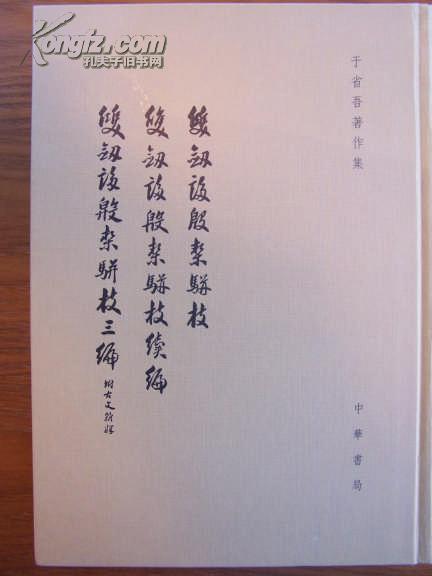 Kongfz.com
孔夫子旧书网
于省吾著作集
雙劍誃殷栔駢枝
雙劍誃殷栔駢枝續編
雙劍誃殷栔駢枝三編
附古文雜釋
中華書局